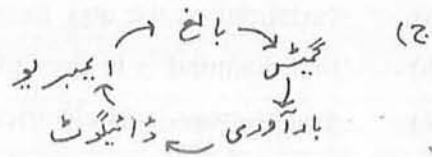 ج)
بالغ
گیٹس
بارآوری
ذائیگوٹ
ایمبریو